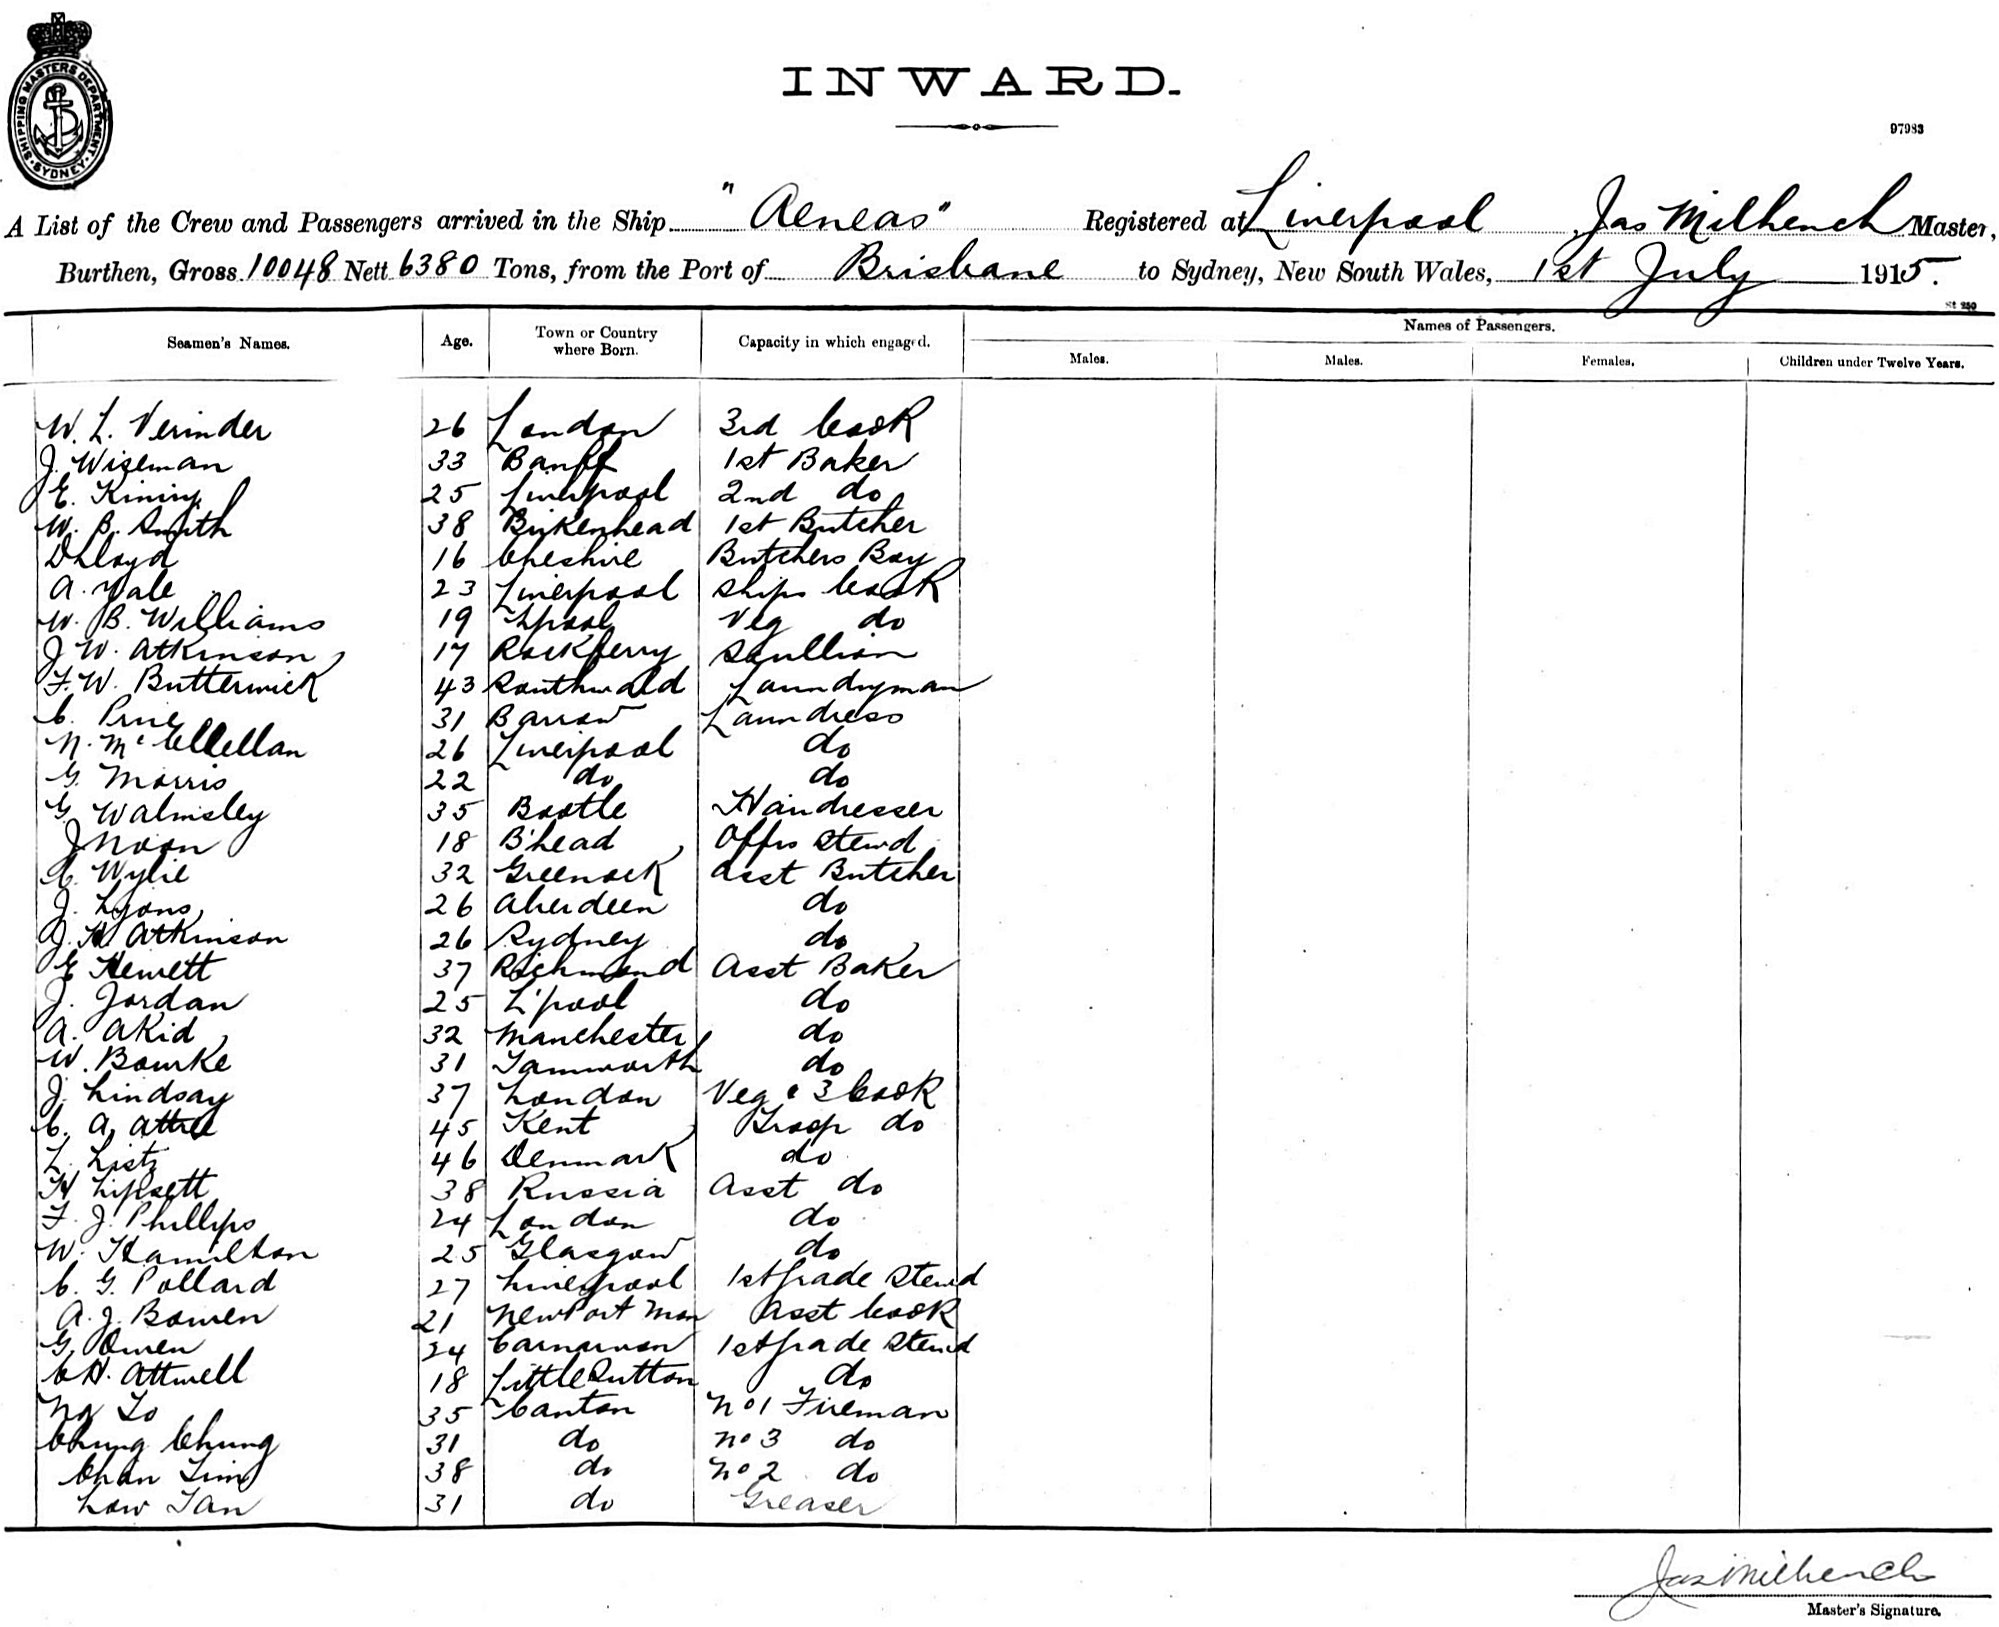 INWARD.
SHIPPING MASTERS DEPARTMENT. SYDNEY
97983
A List of the Crew and Passengers arrived in the Ship "Aeneas" Registered at Liverpool Jas Milhench Master,
Burthen, Gross 10048 Nett 6380 Tons, from the Port of Brisbane to Sydney, New South Wales, 1st July 1915.
St 250
Seamen's Names. Age. Town or Country where Born. Capacity in which engaged. Names of Passengers.
Males. Males. Females. Children under Twelve Years.
W. L. Verinder 26 London 3rd Cook
J. Wiseman 33 Banff 1st Baker
E. Kiniry 25 Liverpool 2nd do
W. B. Smith 38 Birkenhead 1st Butcher
D Lloyd 16 Cheshire Butchers Boy
A. Vale 23 Liverpool Ships Cook
W. B. Williams 19 L'pool Veg do
J W. Atkinson 17 Rockferry Scullion
F. W. Butterwick 43 Southwold Laundryman
C. Prue 31 Barrow Laundress
N. McClellan 26 Liverpool do
G. Morris 22 do do
G. Walmsley 35 Bootle Hairdresser
J Noon 18 B'head Offrs Stewd
C. Wylie 32 Greenock Asst Butcher
J. Lyons 26 Aberdeen do
J. H. Atkinson 26 Sydney do
E Hewett 37 Richmond Asst Baker
J. Jordan 25 L'pool do
A. Akid 32 Manchester do
W. Bourke 31 Tamworth do
J. Lindsay 37 London Veg & 3 Cook
C. A. Attree 45 Kent Troop do
L. Listz 46 Denmark do
H Lipsett 38 Russia Asst do
F. J. Phillips 24 London do
W. Hamilton 25 Glasgow do
C. G. Pollard 27 Liverpool 1st Grade Stewd
A. J. Bowen 21 NewPort Mon Asst Cook
G. Owen 24 Carnarvon 1st Grade Stewd
C H. Attwell 18 Little Sutton do
Ng To 35 Canton No 1 Fireman
Chung Chung 31 do No 3 do
Chan Tim 38 do No 2 do
Low Tan 31 do Greaser
Jas Milhench
Master's Signature.